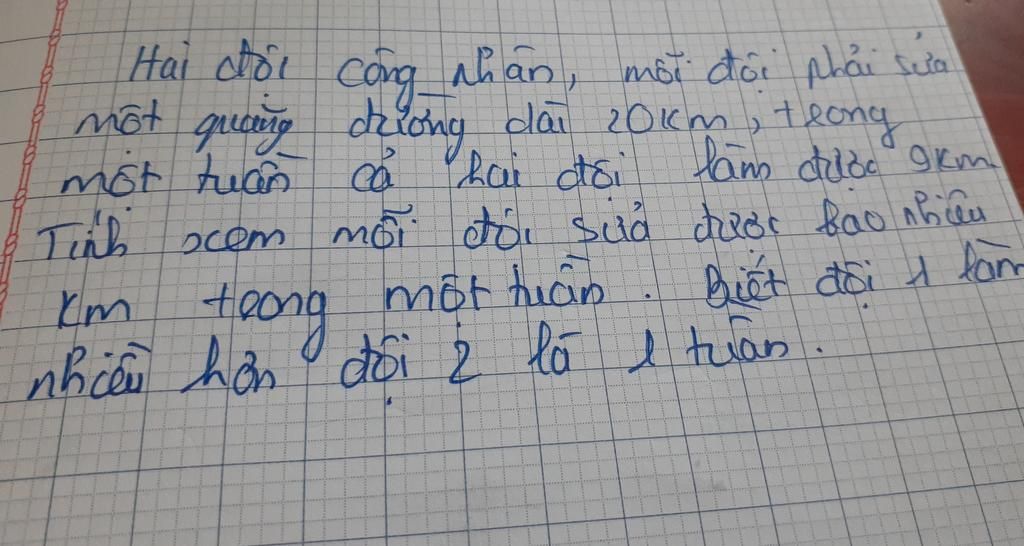 Hai đội công nhân, mỗi đội phải sửa
một quãng đường dài 20km, trong
một tuần cả hai đội làm được 9km
Tính xem mỗi đội sửa được bao nhiêu
km trong một tuần. Biết đội 1 làm
nhiều hơn đội 2 là 1 tuần.